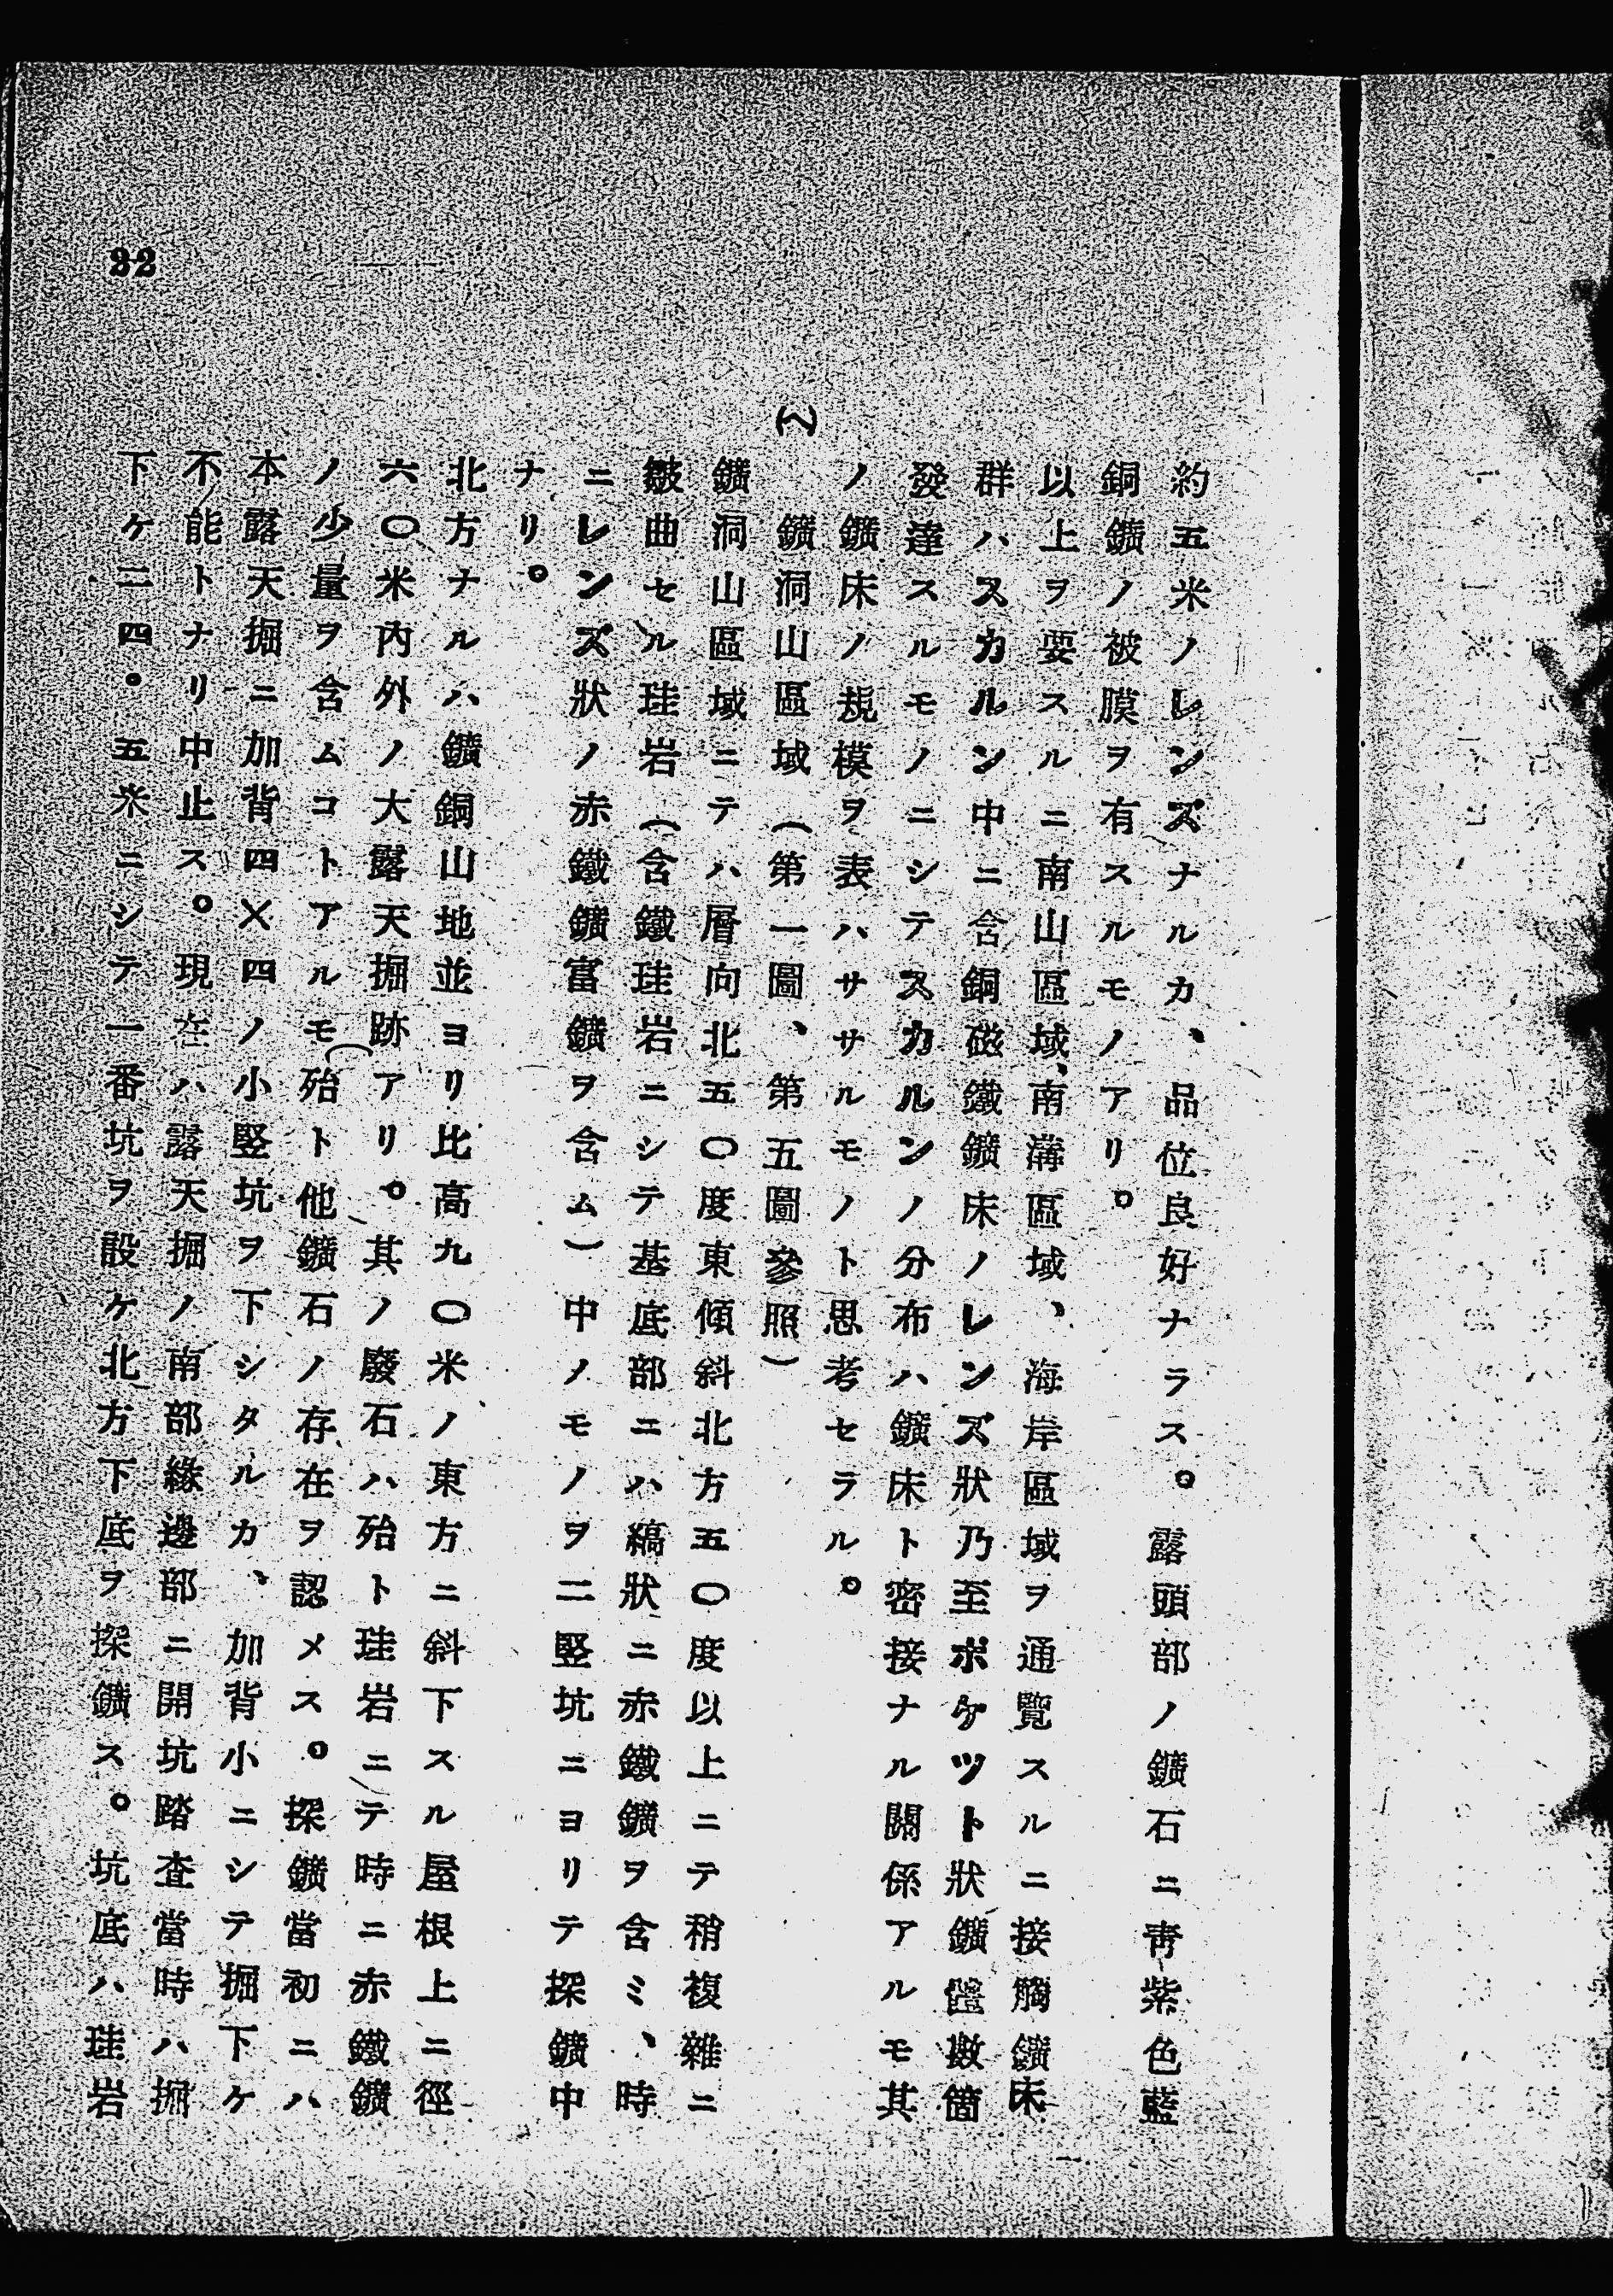 約五米ノレンズナルカ、品位良好ナラス。露頭部ノ鑛石ニ靑紫色藍
銅鑛ノ被膜ヲ有スルモノアリ。
以上ヲ要スルニ南山區域、南溝區域、海岸區域ヲ通覽スルニ接觸鑛床
群ハスカルン中ニ含銅磁鐵鑛床ノレンズ狀乃至ポケツト狀鑛體數箇
發達スルモノニシテスカルンノ分布ハ鑛床ト密接ナル關係アルモ其
ノ鑛床ノ規模ヲ表ハササルモノト思考セラル。
(ヘ)鑛洞山區域(第一圖、第五圖參照)
鑛洞山區域ニテハ層向北五〇度東傾斜北方五〇度以上ニテ稍複雜ニ
皺曲セル珪岩(含鐵珪岩ニシテ基底部ニハ縞狀ニ赤鐵鑛ヲ含ミ、時
ニレンズ狀ノ赤鐵鑛富鑛ヲ含ム)中ノモノヲ二竪坑ニヨリテ探鑛中
ナリ。
北方ナルハ鑛銅山地並ヨリ比高九〇米ノ東方ニ斜下スル屋根上ニ徑
六〇米內外ノ大露天掘跡アリ。其ノ廢石ハ殆ト珪岩ニテ時ニ赤鐵鑛
ノ少量ヲ含ムコトアルモ殆ト他鑛石ノ存在ヲ認メス。探鑛當初ニハ
本露天掘ニ加背四×四ノ小竪坑ヲ下シタルカ、加背小ニシテ掘下ケ
不能トナリ中止ス。現在ハ露天掘ノ南部緣邊部ニ開坑踏査當時ハ掘
下ケ二四・五米ニシテ一番坑ヲ設ケ北方下底ヲ探鑛ス。坑底ハ珪岩
32